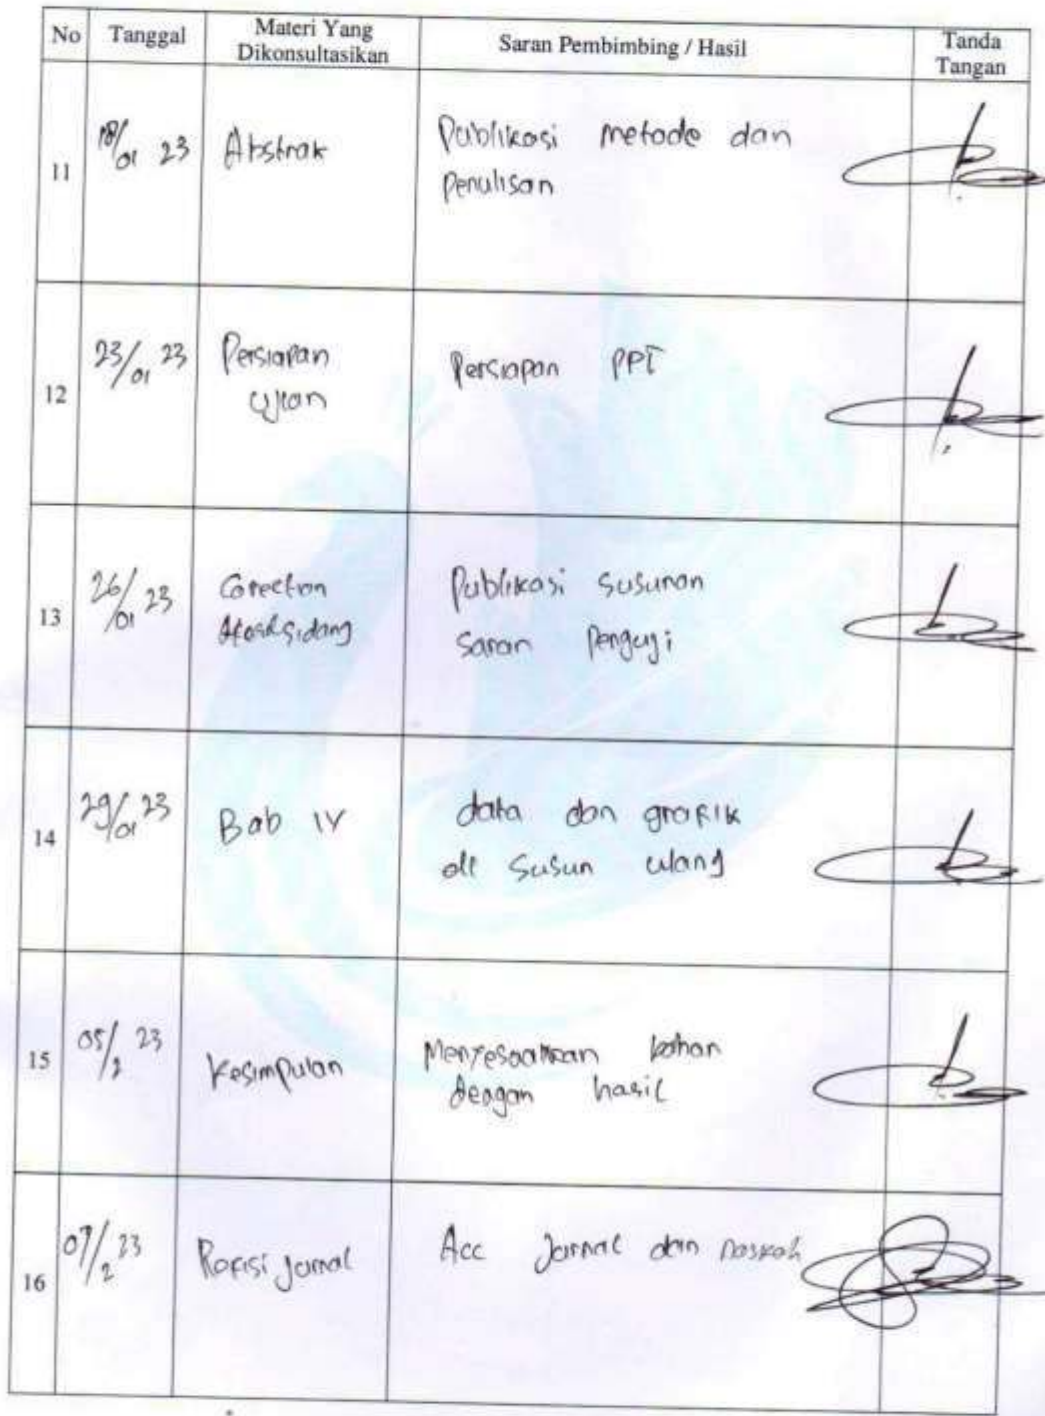 No Tanggal Materi Yang Dikonsultasikan Saran Pembimbing / Hasil Tanda Tangan
11 18/01 23 Abstrak Publikasi metode dan
penulisan
12 23/01 23 Persiapan Persiapan PPT
ujian
13 26/01 23 Corection Publikasi susunan
sidang saran Penguji
14 29/01 23 Bab IV data dan grafik
di susun ulang
15 05/2 23 Kesimpulan bahan
dengan hasil
16 07/2 23 Refisi jornal Acc Jornal dan naskah